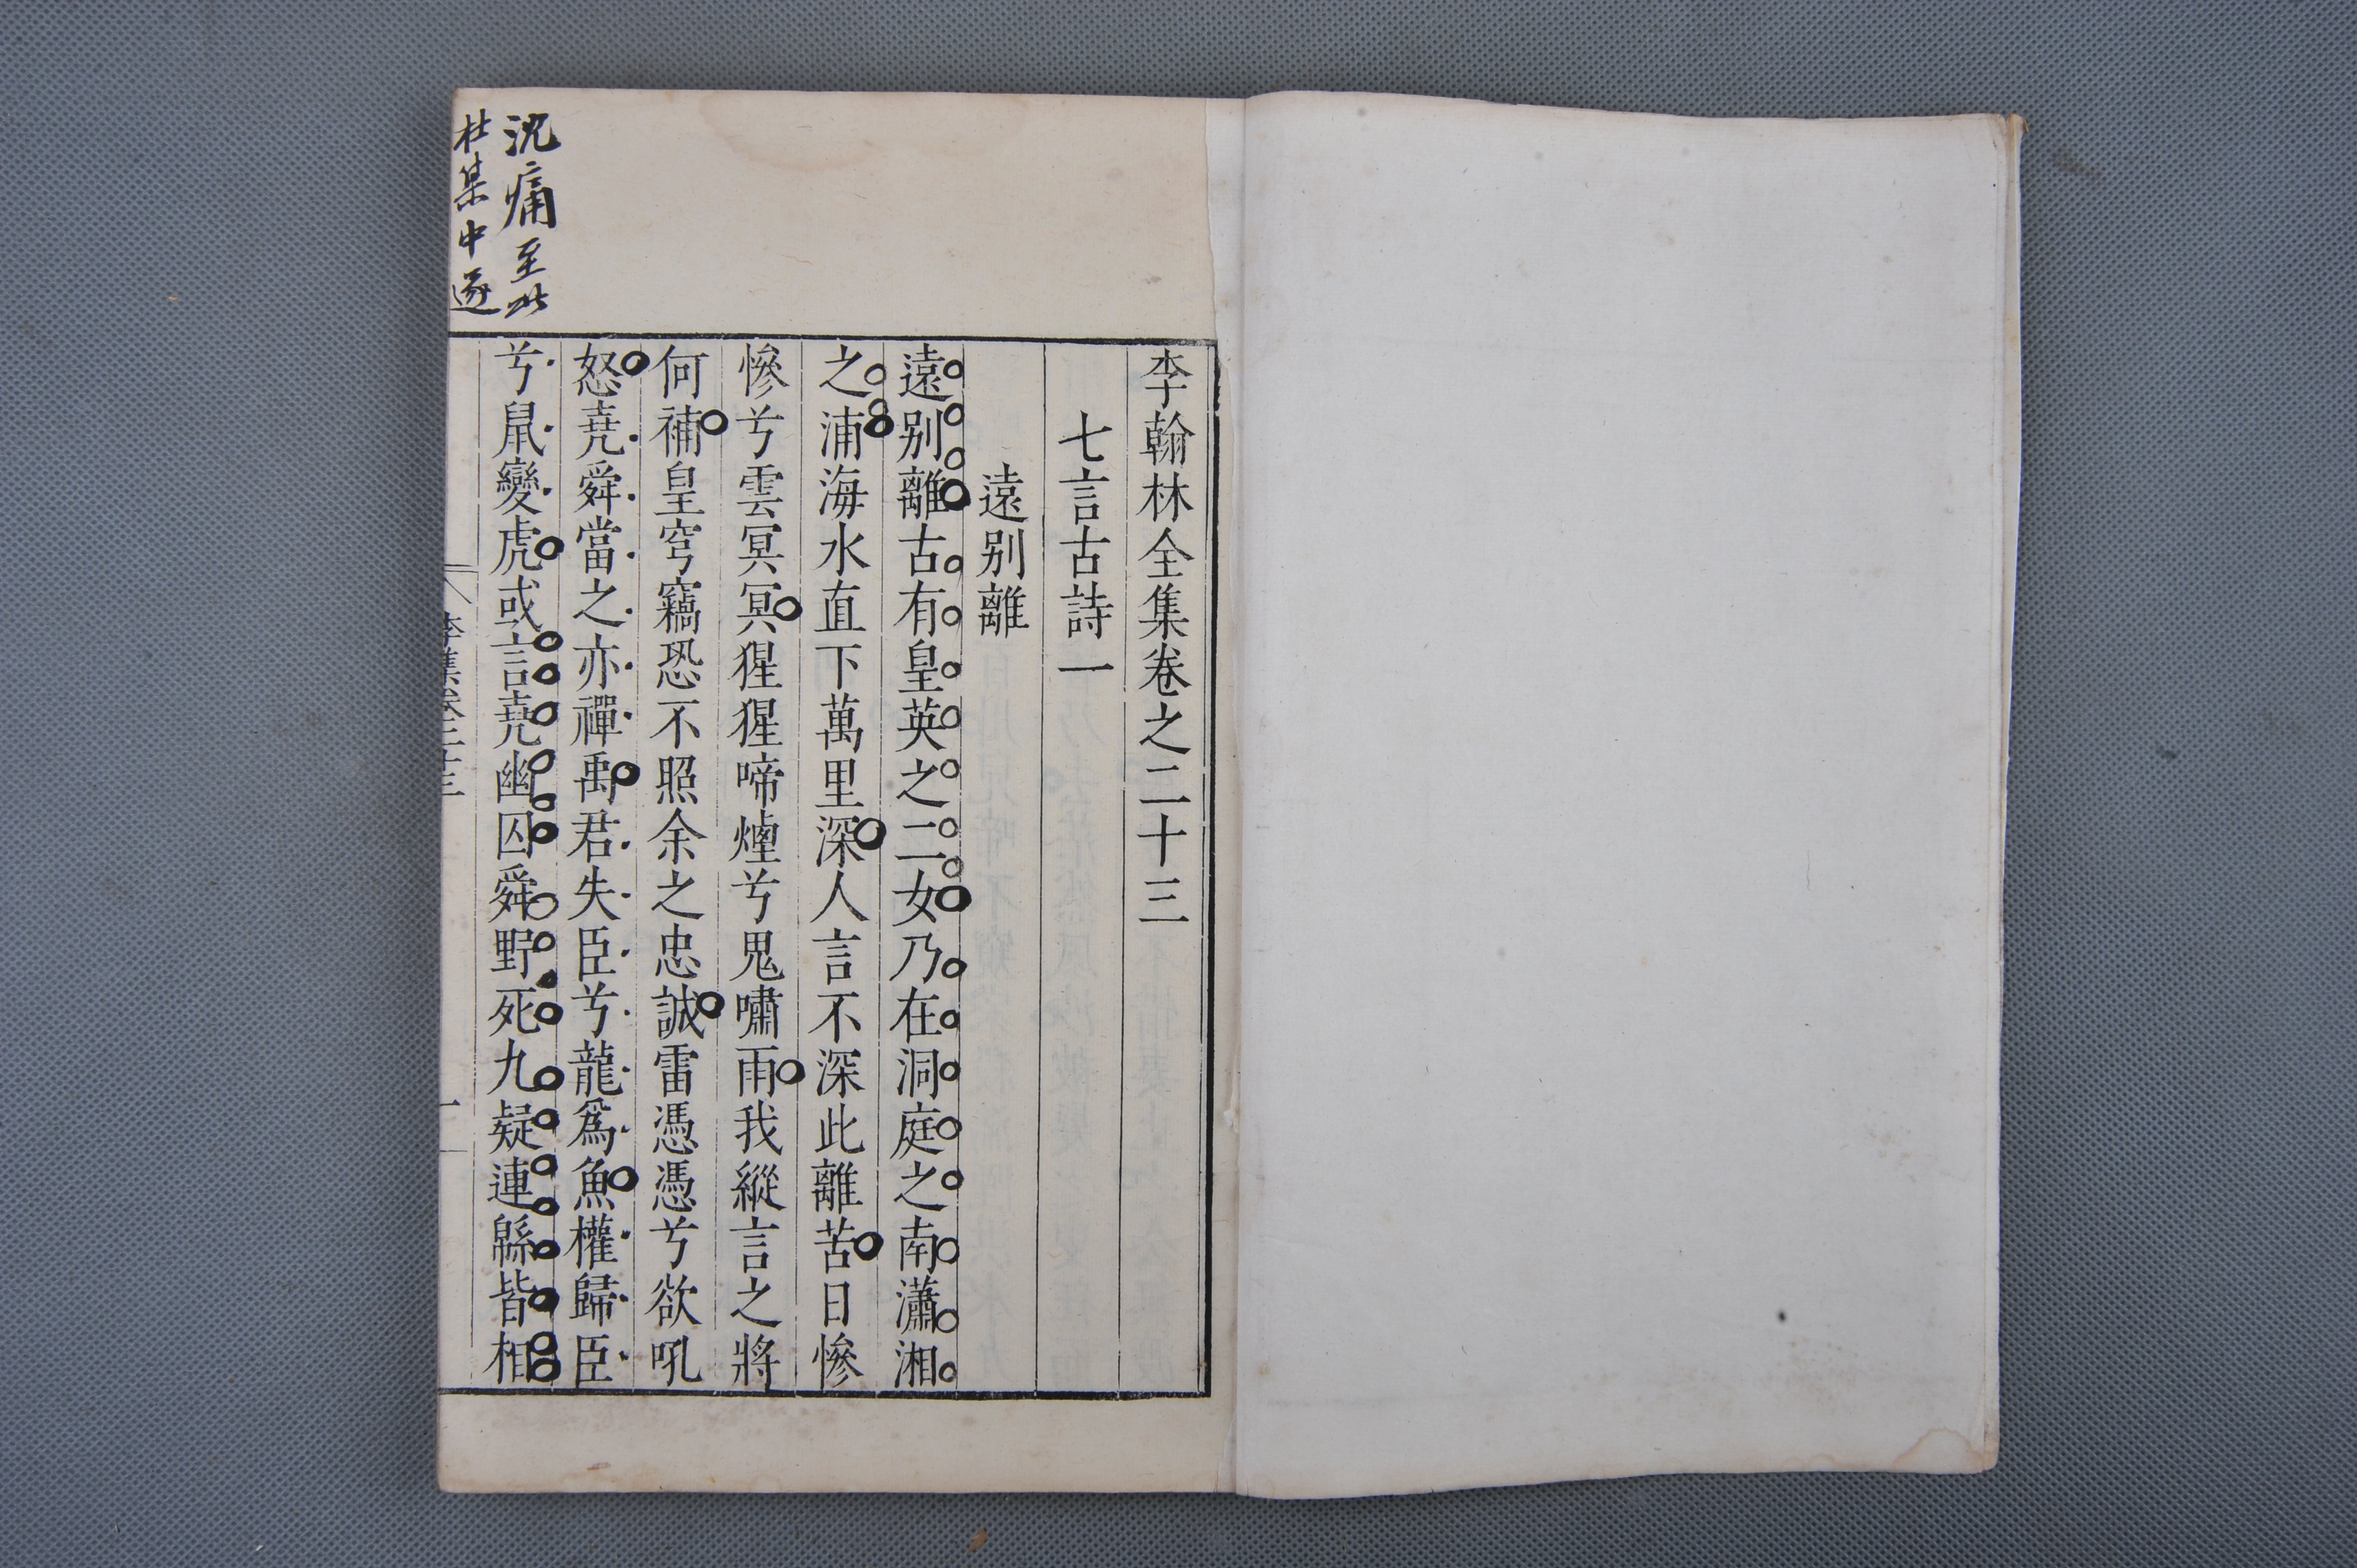 沈痛至此
杜集中遜
李翰林全集卷之二十三
七言古詩一
遠别離
遠别離古有皇英之二女乃在洞庭之南瀟湘
之浦海水直下萬里深人言不深此離苦日慘
慘兮雲冥冥猩猩啼煙兮鬼嘯雨我縱言之將
何補皇穹竊恐不照余之忠誠雷憑憑兮欲吼
怒堯舜當之亦禪禹君失臣兮龍爲魚權歸臣
兮鼠變虎或言堯幽囚舜野死九疑連緜皆相
李集卷二十三
一